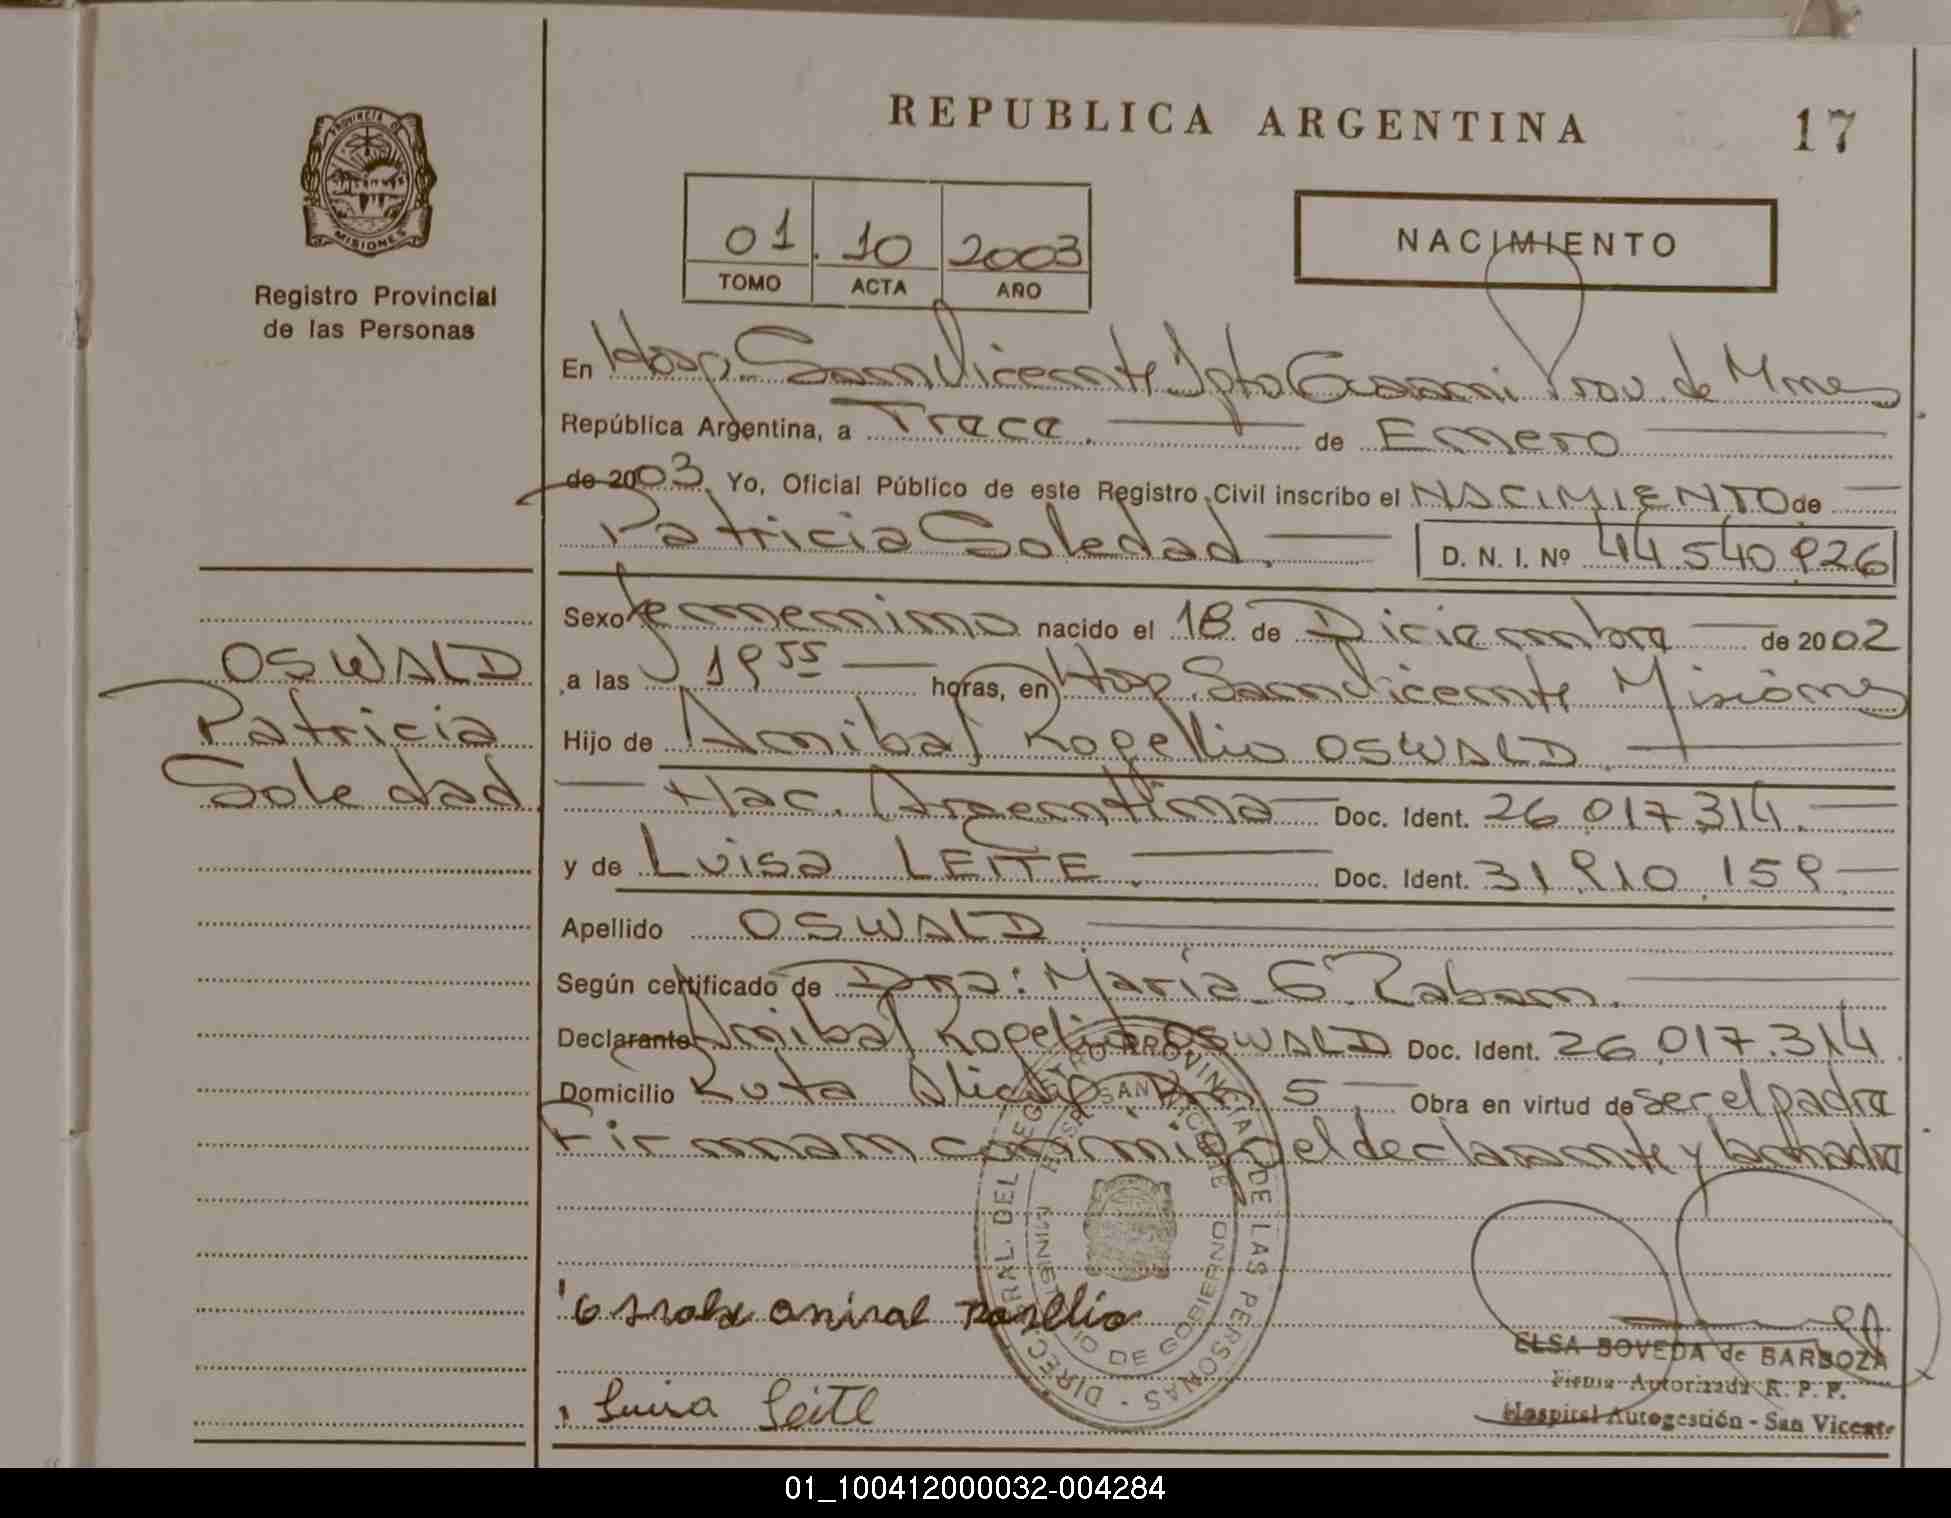 REPUBLICA ARGENTINA
17
PROVINCIA DE
MISIONES
Registro Provincial
de las Personas
01 10 2003
TOMO ACTA AÑO
NACIMIENTO
En Hosp. San Vicente Dpto Guarani Prov. de Mnes
República Argentina, a Trece de Enero
de 2003 Yo, Oficial Público de este Registro Civil inscribo el NACIMIENTO de
Patricia Soledad D. N. I. Nº 44.540.926
OSWALD
Patricia
Soledad
Sexo femenino nacido el 18 de Diciembre de 2002
a las 19 55 horas, en Hosp. San Vicente Misiones
Hijo de Anibal Rogelio OSWALD
Nac. Argentina Doc. Ident. 26.017.314
y de Luisa LEITE Doc. Ident. 31.910.159
Apellido OSWALD
Según certificado de Dra: María G. Raban
Declarante Anibal Rogelio OSWALD Doc. Ident. 26.017.314
Domicilio Ruta 5 Obra en virtud de ser el padre
Firman conmigo el declarante y la madre
DIREC. GRAL. DEL REGISTRO PROVINCIAL DE LAS PERSONAS
MINISTERIO DE GOBIERNO
Luisa Leite
ELSA BOVEDA de BARBOZA
Firma Autorizada R. P. P.
Hospital Autogestión - San Vicente
01_100412000032-004284